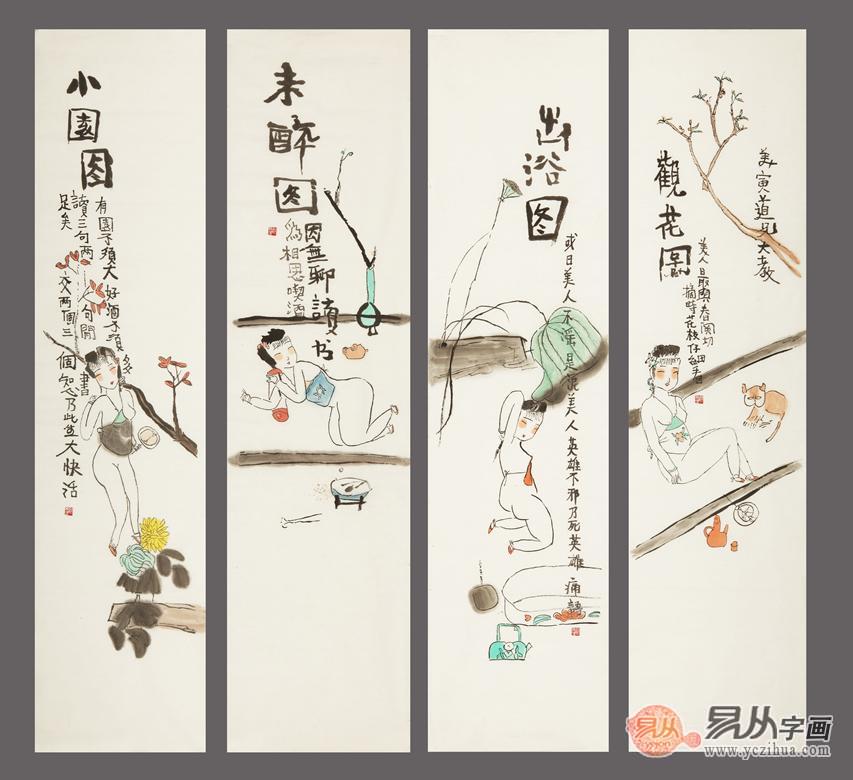 小園图
有園不須大好酒不須多
讀三句两句閒書
足矣
交两個三個知己乃此生大快活
未醉图
因無聊讀书
為相思喫酒
出浴图
或曰美人不淫是泥美人英雄不邪乃死英雄痛語
觀花圖
美寅道兄大教
美人
春
摘時花枝休
手
易从
易从字画
www.yczihua.com